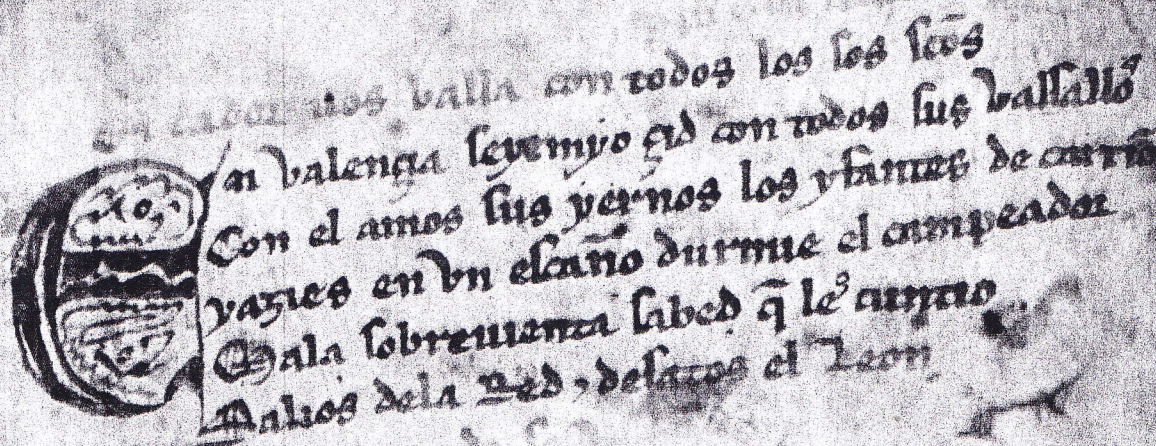 cador nos valla con todos los sos sc̃os
En valençia seye myo çid con todos sus vassallos
Con el amos sus yernos los yfantes de carrio᷈
yazies en vn escaño durmie el campeador
Mala sobreuienta sabed q̃ les cuntio
Salios dela Red ⁊ desatos el Leon